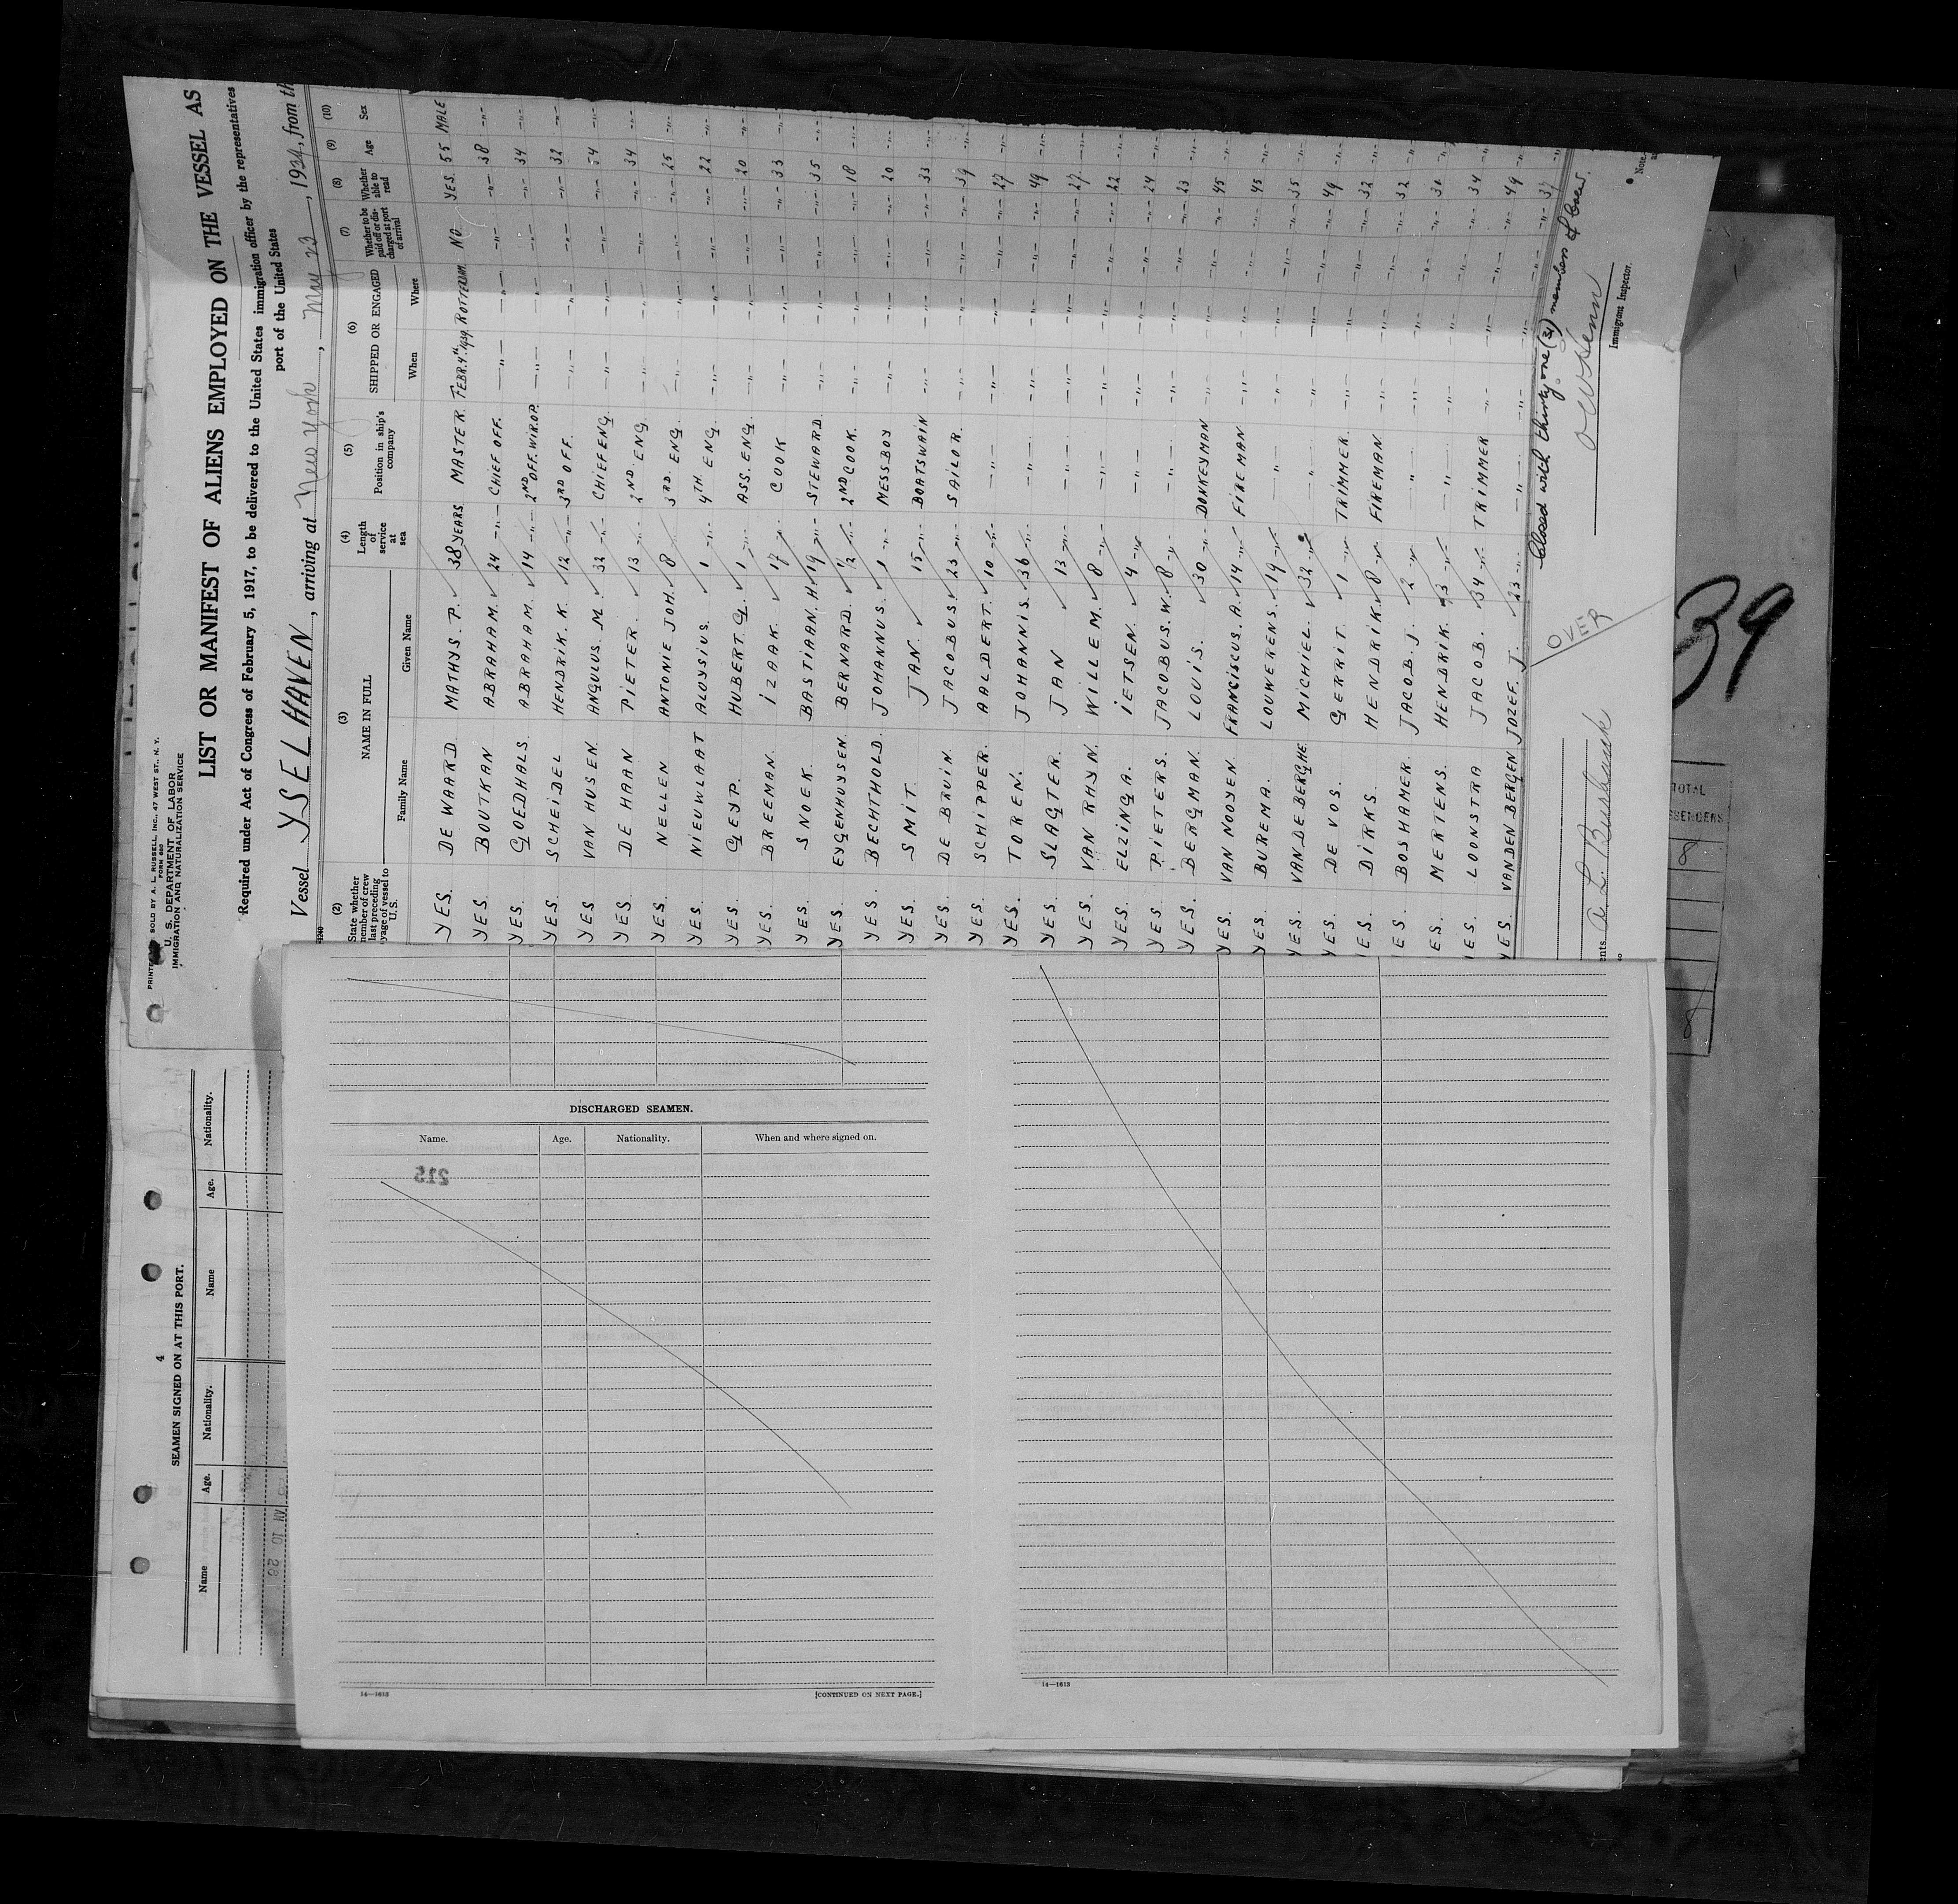 PRINTED SOLD BY A. L. RUSSELL, INC., 47 WEST ST., N. Y.
FORM 680
U. S. DEPARTMENT OF LABOR
IMMIGRATION AND NATURALIZATION SERVICE
LIST OR MANIFEST OF ALIENS EMPLOYED ON THE VESSEL AS
Required under Act of Congress of February 5, 1917, to be delivered to the United States immigration officer by the representatives
port of the United States
Vessel YSELHAVEN, arriving at New York, May 23, 1934, from th
(2) (3) (4) (5) (6) (7) (8) (9) (10)
State whether member of crew last preceding voyage of vessel to U.S. NAME IN FULL Length of service at sea Position in ship's company SHIPPED OR ENGAGED Whether to be paid off or discharged at port of arrival Whether able to read Age Sex
Family Name Given Name When Where
YES. DE WAARD. MATHYS. P. 38 YEARS MASTER FEBR. 4th 1934. ROTTERDAM. NO YES. 55 MALE
YES. BOUTKAN ABRAHAM. 24 -"- CHIEF OFF. -"- -"- -"- -"- 38 -"-
YES. GOEDHALS. ABRAHAM. 14 -"- 2ND OFF. WIR.OP. -"- -"- -"- -"- 34 -"-
YES. SCHEIDEL HENDRIK. K. 12 -"- 3RD OFF. -"- -"- -"- -"- 32 -"-
YES VAN HUSEN ANGULUS. M. 32 -"- CHIEF ENG. -"- -"- -"- -"- 54 -"-
YES. DE HAAN PIETER. 13 -"- 2ND ENG. -"- -"- -"- -"- 34 -"-
YES NELLEN ANTONIE JOH. 8 -"- 3RD ENG. -"- -"- -"- -"- 25 -"-
YES. NIEUWLAAT ALOYSIUS. 1 -"- 4TH. ENG. -"- -"- -"- -"- 22 -"-
YES. GEYP. HUBERT. G. 1 -"- ASS. ENG. -"- -"- -"- -"- 20 -"-
YES. BREEMAN. IZAAK. 17 -"- COOK -"- -"- -"- -"- 33 -"-
YES. SNOEK. BASTIAAN. H. 19 -"- STEWARD. -"- -"- -"- -"- 35 -"-
YES. EYGENHUYSEN. BERNARD. 1/2 -"- 2ND COOK. -"- -"- -"- -"- 18 -"-
YES. BECHTHOLD. JOHANNUS. 1 -"- MESSBOY -"- -"- -"- -"- 20 -"-
YES. SMIT. JAN. 15 -"- BOATSWAIN -"- -"- -"- -"- 33 -"-
YES. DE BRUIN. JACOBUS. 23 -"- SAILOR. -"- -"- -"- -"- 39 -"-
YES. SCHIPPER. AALDERT. 10 -"- -"- -"- -"- -"- -"- 27 -"-
YES. TOREN. JOHANNIS. 36 -"- -"- -"- -"- -"- -"- 49 -"-
YES. SLAGTER. JAN 13 -"- -"- -"- -"- -"- -"- 27 -"-
YES. VAN RHYN. WILLEM. 8 -"- -"- -"- -"- -"- -"- 22 -"-
YES. ELZINGA. IETSEN. 4 -"- -"- -"- -"- -"- -"- 24 -"-
YES. PIETERS. JACOBUS. W. 8 -"- -"- -"- -"- -"- -"- 23 -"-
YES. BERGMAN. LOUIS. 30 -"- DONKEYMAN -"- -"- -"- -"- 45 -"-
YES. VAN NOOYEN. FRANCISCUS. A. 14 -"- FIREMAN -"- -"- -"- -"- 45 -"-
YES. BUREMA. LOUWERENS. 19 -"- -"- -"- -"- -"- -"- 35 -"-
YES. VAN DE BERGHE MICHIEL. 32 -"- -"- -"- -"- -"- -"- 49 -"-
YES. DE VOS. GERRIT. 1 -"- TRIMMER. -"- -"- -"- -"- 32 -"-
ES. DIRKS. HENDRIK. 8 -"- FIREMAN -"- -"- -"- -"- 32 -"-
ES. BOSHAMER. JACOB. J. 2 -"- -"- -"- -"- -"- -"- -"-
ES. MERTENS. HENDRIK. 3 -"- -"- -"- -"- -"- -"- 34 -"-
ES. LOONSTRA JACOB. 34 -"- TRIMMER -"- -"- -"- -"- 49 -"-
YES. VAN DEN BERGEN JOZEF. J. 23 -"- -"- -"- -"- -"- -"- 37 -"-
Closed with thirty one (31) members of Crew.
OVER
Immigrant Inspector.
Note.
39
TOTAL
8
4
SEAMEN SIGNED ON AT THIS PORT.
Name Age. Nationality. Name Age. Nationality.
DISCHARGED SEAMEN.
Name. Age. Nationality. When and where signed on.
215
14—1613 [CONTINUED ON NEXT PAGE.]
14—1613